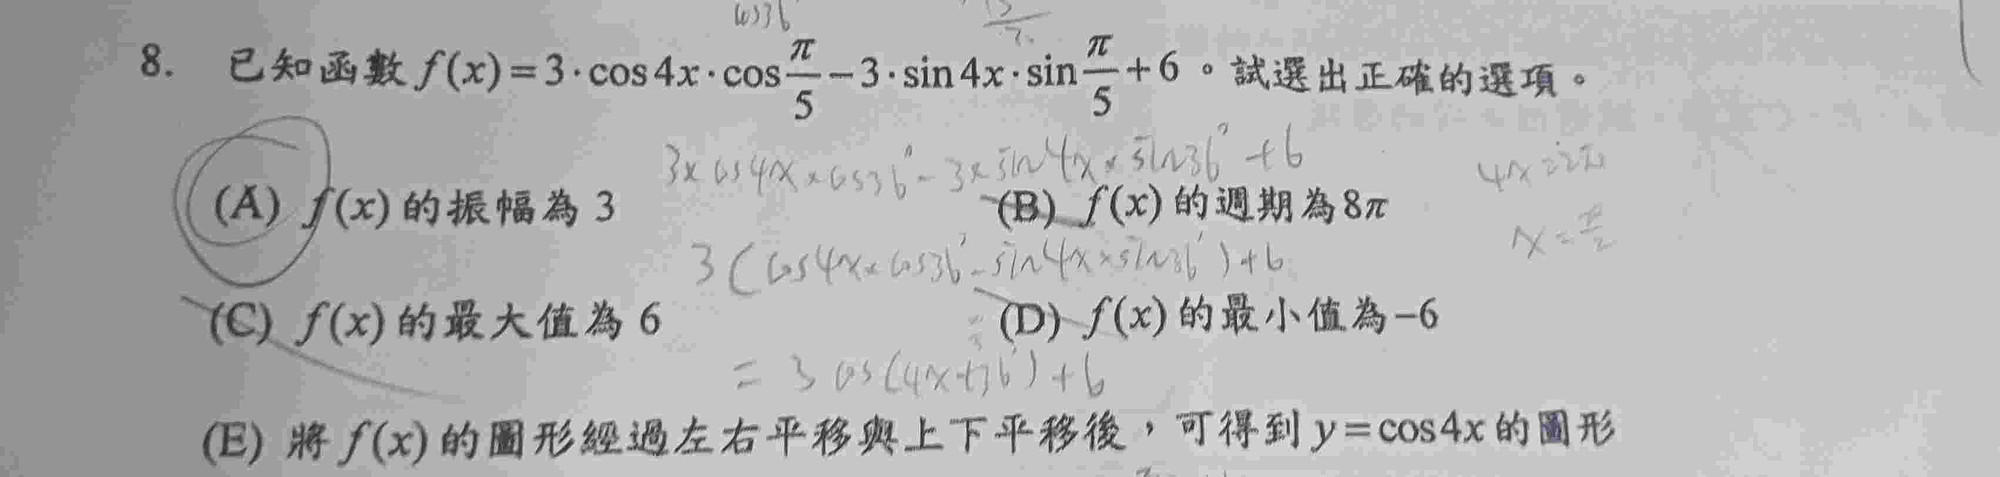 cos36
8. 已知函數 f(x)=3·cos4x·cos π/5 −3·sin4x·sin π/5 +6。試選出正確的選項。
3×cos4x×cos36°−3×sin4x×sin36°+6
4x=2π
(A) f(x) 的振幅為 3 (B) f(x) 的週期為8π
x=π/2
3(cos4x×cos36°−sin4x×sin36°)+6
(C) f(x) 的最大值為 6 (D) f(x) 的最小值為−6
= 3cos(4x+36°)+6
(E) 將 f(x) 的圖形經過左右平移與上下平移後，可得到 y=cos4x 的圖形